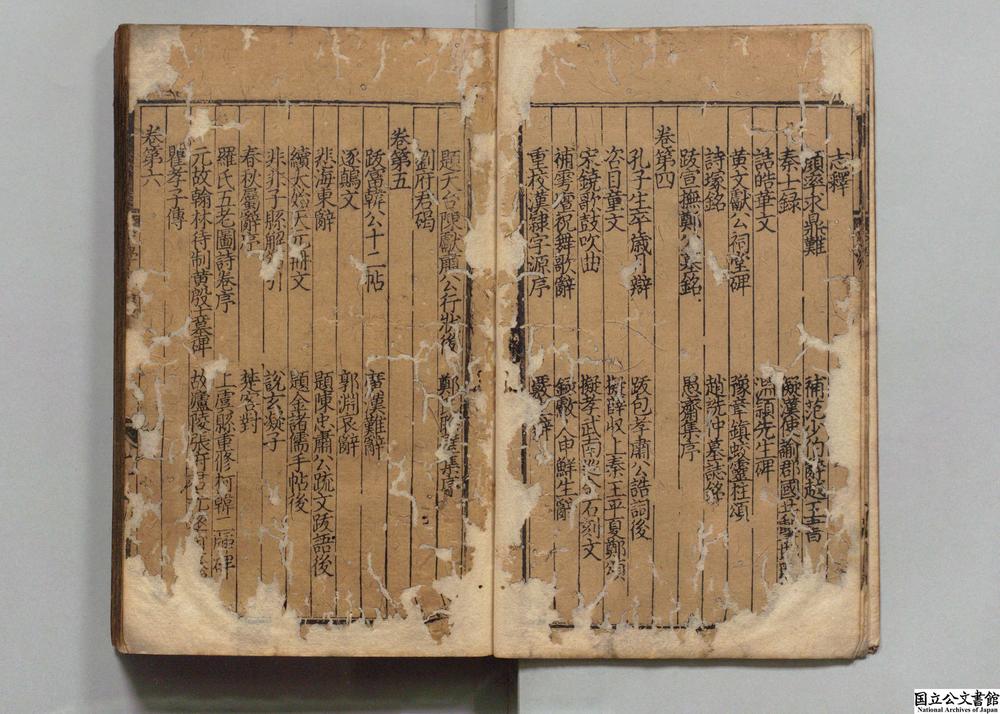 志釋
補范少伯辭越王書
頑率求鼎難
擬漢使諭郡國
秦士錄
淵穎先生碑
誥皓華文
豫章鎮蛟靈柱頌
黃文獻公祠堂碑
趙詵仲墓誌銘
詩塚銘
愚齋集序
跋宣撫鄭公墓銘
卷第四
孔子生卒歲月辯
跋包孝肅公誥詞後
咨目童文
擬薛收上秦王平夏鄭頌
宋鐃歌鼓吹曲
擬孝武南巡 石刻文
補雩壇祝舞歌辭
人申鮮生辭
重校漢隷字源序
辭
題天台陳獻肅公行狀後
鄭 集序
劉府君碣
卷第五
跋富韓公十二帖
廣漢難辭
逐鷂文
郭淵哀辭
悲海東辭
題陳忠肅公疏文跋語後
續太始天元冊文
題金諸儒手帖後
非非子縣解 引
說玄凝子
春秋屬辭序
樊宮對
羅氏五老圖詩卷序
上虞縣重修柯韓二 碑
元故翰林待制黃殷士墓碑
故廬陵張府君
瞿孝子傳
卷第六
国立公文書館
National Archives of Japan